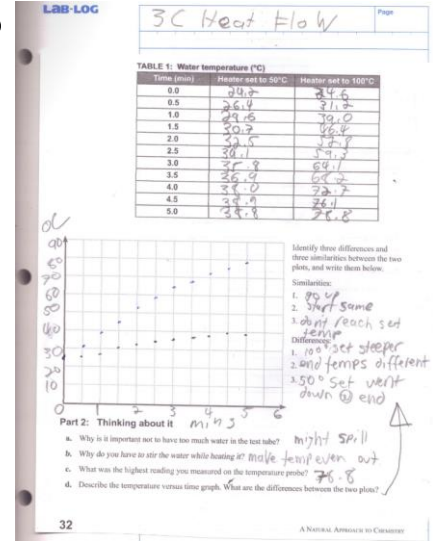 LAB-LOG
3C Heat Flow
Page
TABLE 1: Water temperature (°C)
Time (min) Heater set to 50°C Heater set to 100°C
0.0 24.6
0.5 26.4 31.2
1.0 29.6 39.0
1.5 30.7 46.4
2.0 32.5
2.5 34.1 59.3
3.0 35.8 64.1
3.5 36.9 68.2
4.0 38.0 72.7
4.5 38.9 76.1
5.0 38.8 78.8
°C
90
80
70
60
50
40
30
20
10
0 1 2 3 4 5 6
mins
Identify three differences and
three similarities between the two
plots, and write them below.
Similarities:
1. go up
2. start same
3. dont reach set
temp
Differences:
1. 100° set steeper
2. end temps different
3. 50° set went
down @ end
Part 2: Thinking about it
a. Why is it important not to have too much water in the test tube? might spill
b. Why do you have to stir the water while heating it? make temp even out
c. What was the highest reading you measured on the temperature probe? 78.8
d. Describe the temperature versus time graph. What are the differences between the two plots?
32
A NATURAL APPROACH TO CHEMISTRY